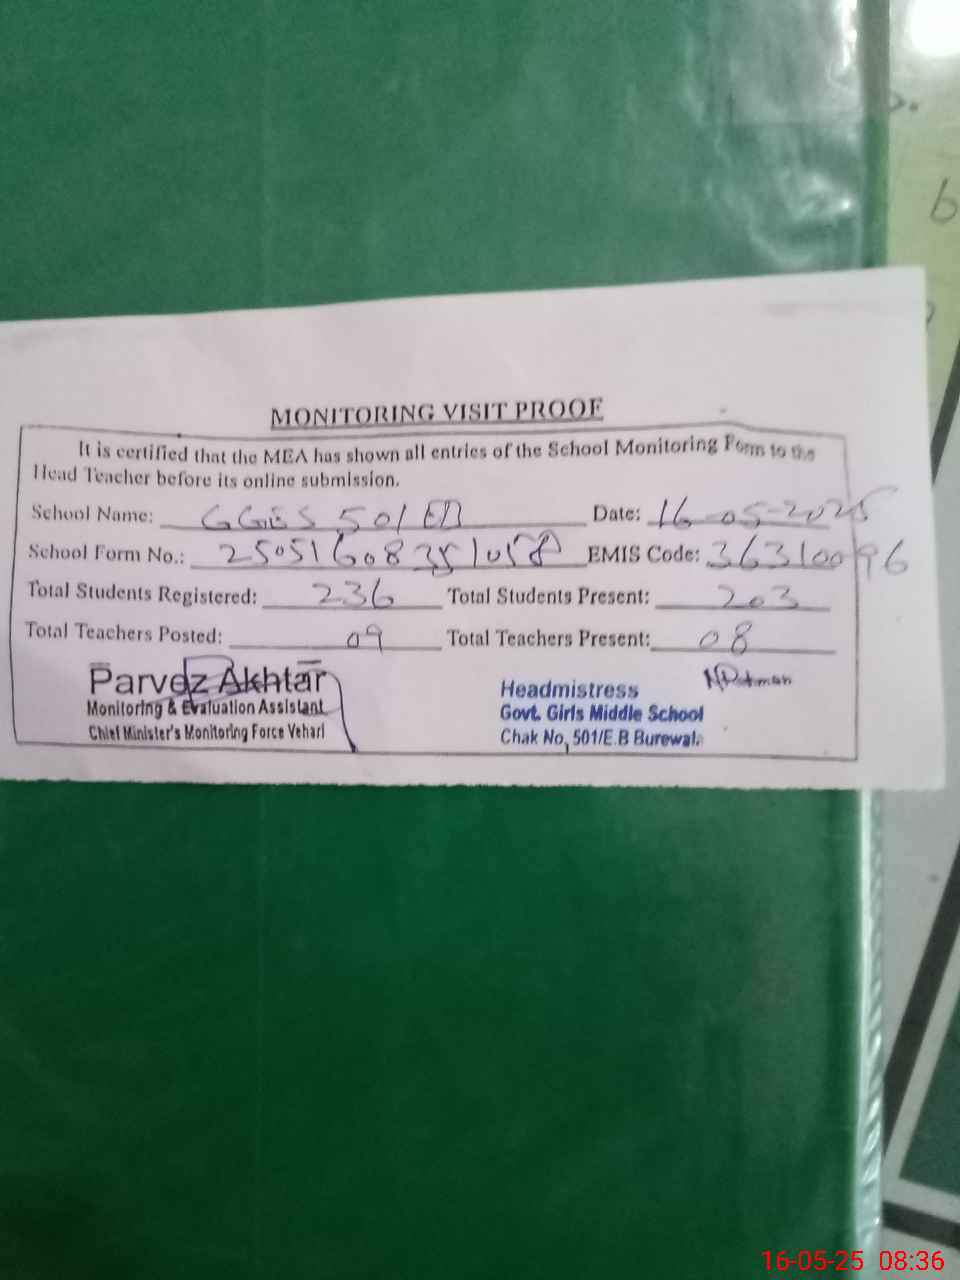 MONITORING VISIT PROOF
It is certified that the MEA has shown all entries of the School Monitoring Form to the
Head Teacher before its online submission.
School Name: GGES 501 EB Date: 16-05-2025
School Form No.: EMIS Code: 36310096
Total Students Registered: 236 Total Students Present: 203
Total Teachers Posted: 09 Total Teachers Present: 08
Parvez Akhtar
Monitoring & Evaluation Assistant
Chief Minister's Monitoring Force Vehari
Headmistress
Govt. Girls Middle School
Chak No, 501/E.B Burewala
16-05-25 08:36